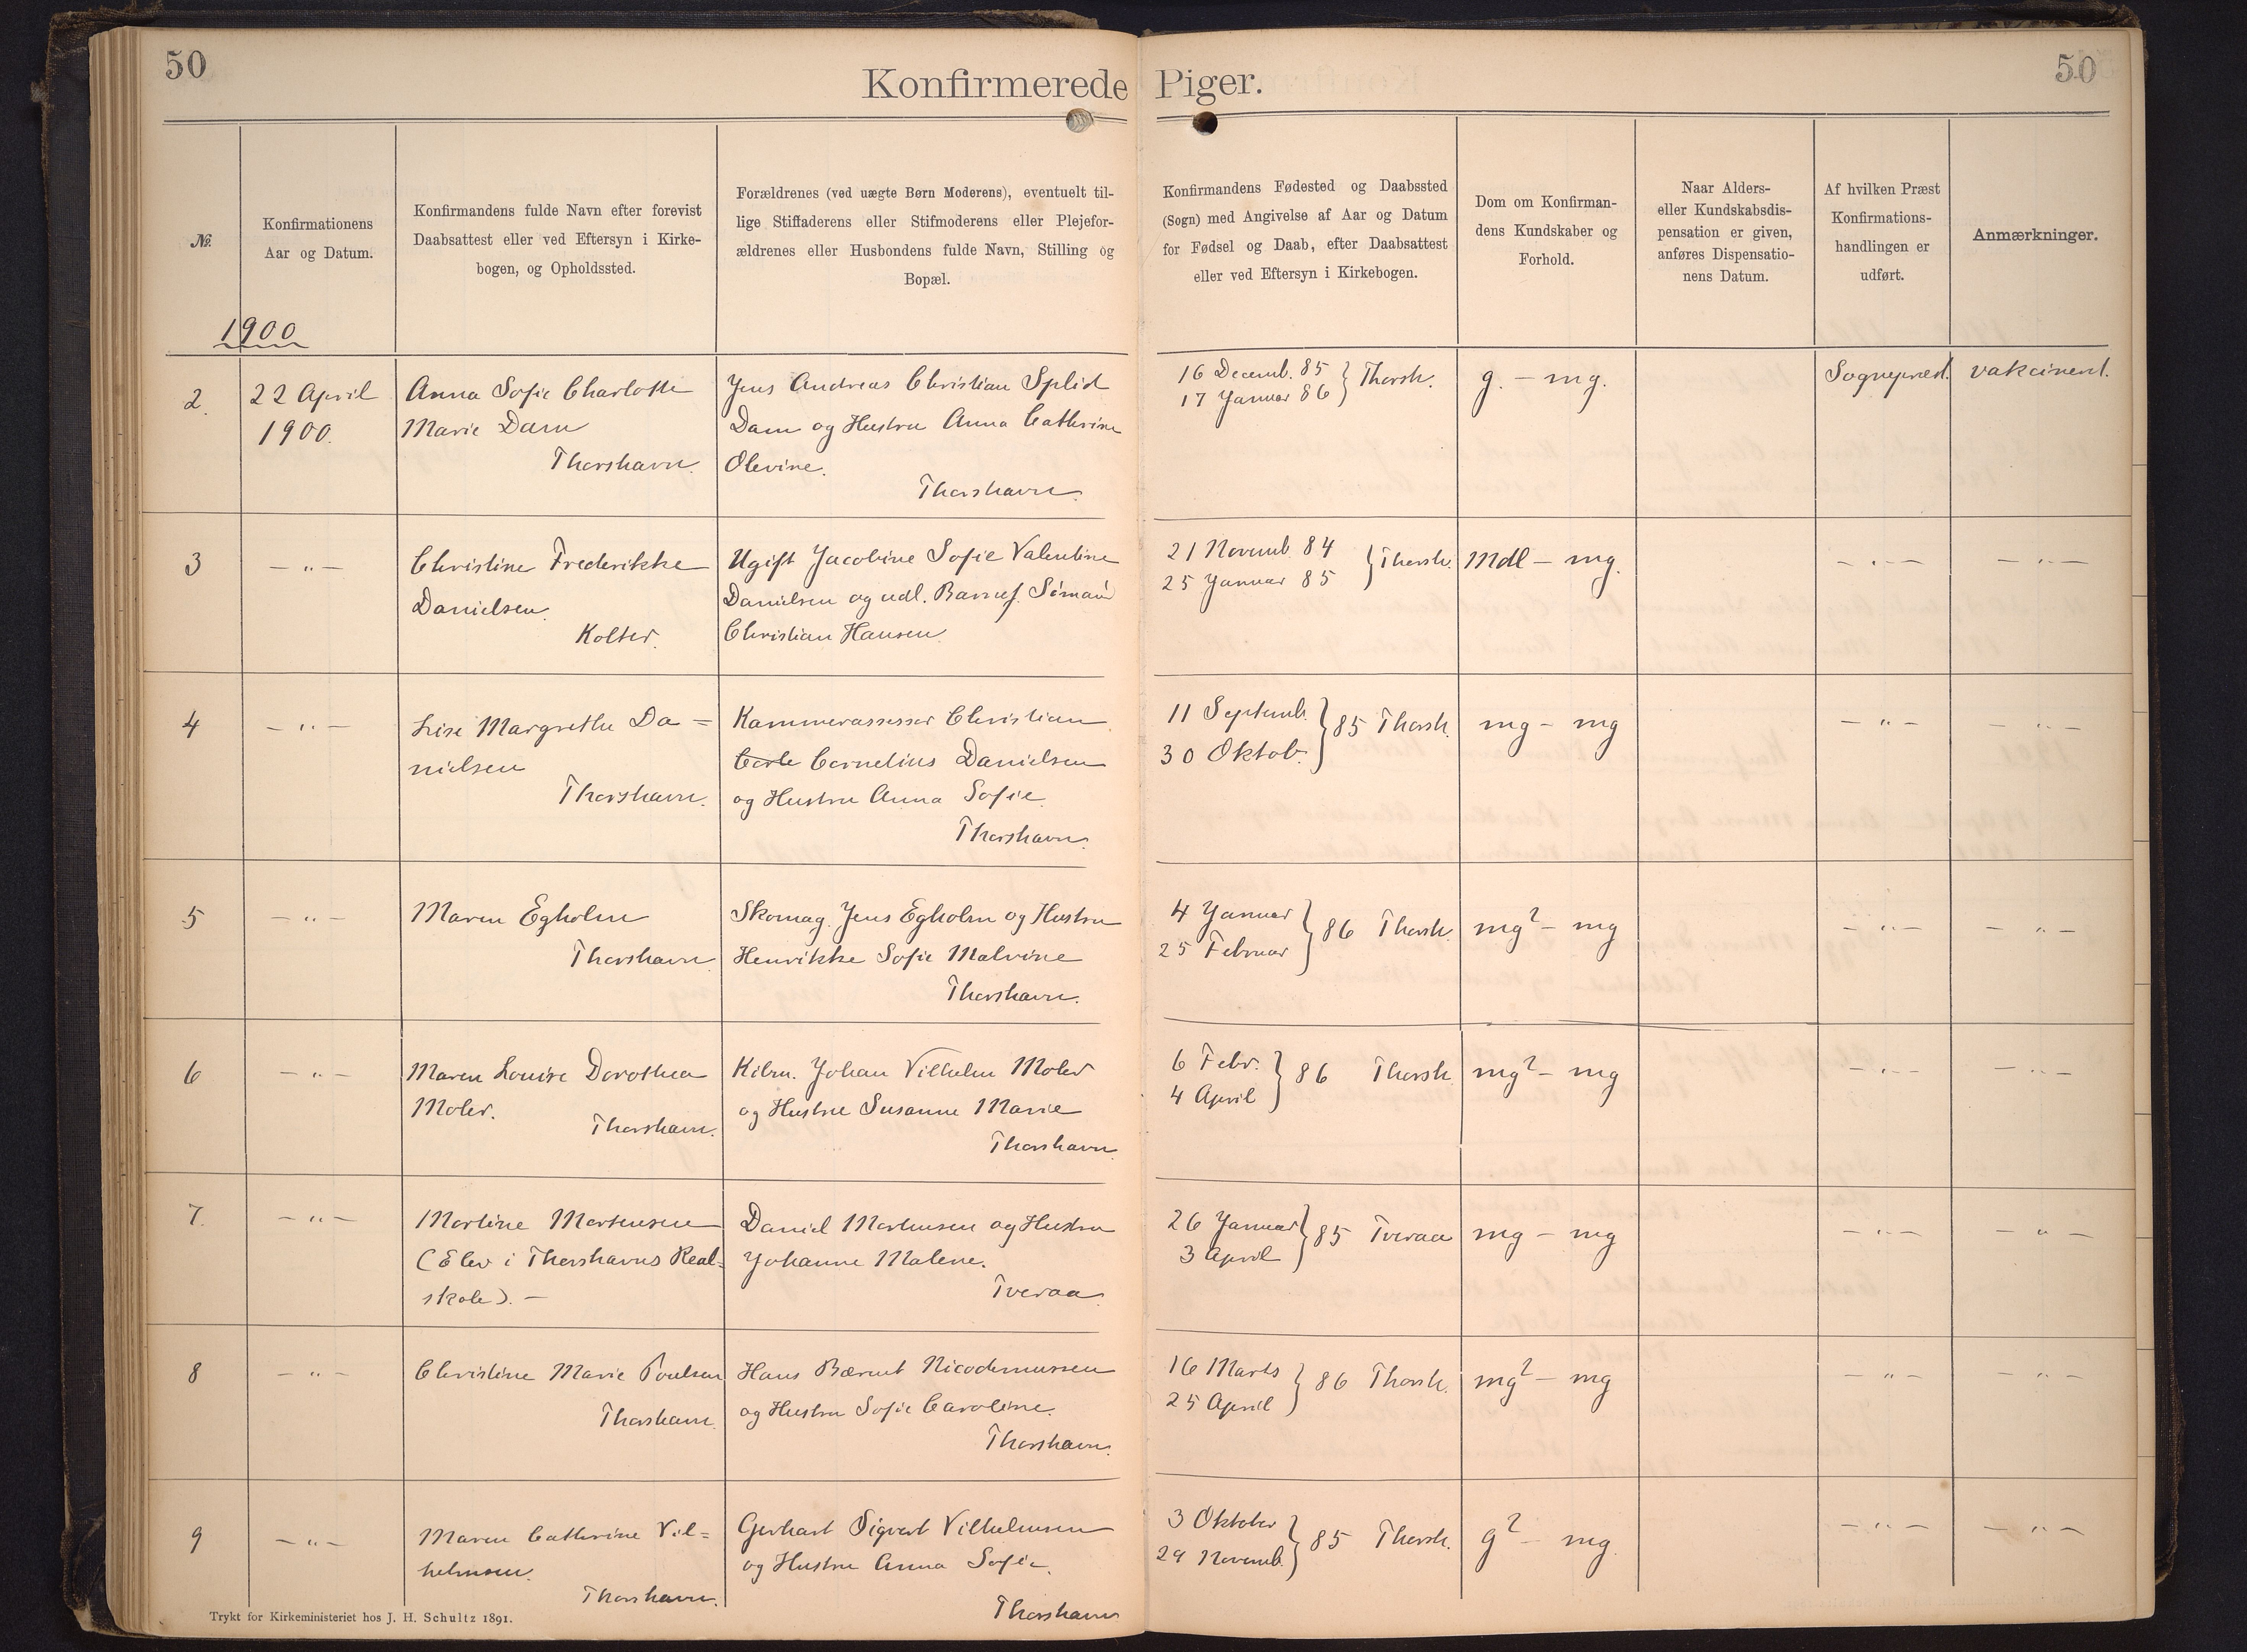 50
50
Konfirmerede Piger.
№.
Konfirmationens
Aar og Datum.
Konfirmandens fulde Navn efter forevist
Daabsattest eller ved Eftersyn i Kirke-
bogen, og Opholdssted.
Forældrenes (ved uægte Børn Moderens), eventuelt til-
lige Stiffaderens eller Stifmoderens eller Plejefor-
ældrenes eller Husbondens fulde Navn, Stilling og
Bopæl.
Konfirmandens Fødested og Daabssted
(Sogn) med Angivelse af Aar og Datum
for Fødsel og Daab, efter Daabsattest
eller ved Eftersyn i Kirkebogen.
Dom om Konfirman-
dens Kundskaber og
Forhold.
Naar Alders-
eller Kundskabsdis-
pensation er given,
anføres Dispensatio-
nens Datum.
Af hvilken Præst
Konfirmations-
handlingen er
udført.
Anmærkninger.
1900
2.
22 April
1900.
Anna Sofie Charlotte
Marie Dam
Thorshavn.
Jens Andreas Christian Splid
Dam og Hustru Anna Cathrine
Olevine.
Thorshavn.
16 Decemb. 85
17 Januar 86 } Thorsh.
g. – mg.
Sognepræst.
vakcineret.
3
– " –
Christine Frederikke
Danielsen.
Kolter.
Ugift Jacobine Sofie Valentine
Danielsen og udl. Barnef. Sömand
Christian Hansen.
21 Novemb. 84
25 Januar 85 } Thorsh.
Mdl – mg.
– " –
– " –
4
– " –
Lise Margrethe Da=
nielsen
Thorshavn.
Kammerassessor Christian
Cornelius Danielsen
og Hustru Anna Sofie.
Thorshavn.
11 Septemb.
30 Oktob. } 85 Thorsh.
mg – mg
– " –
– " –
5
– " –
Maren Egholm
Thorshavn
Skomag. Jens Egholm og Hustru
Henrikke Sofie Malvine
Thorshavn.
4 Januar
25 Februar } 86 Thorsh.
mg? – mg
– " –
– " –
6
– " –
Maren Louise Dorothea
Moler.
Thorshavn.
Kbm. Johan Vilhelm Moler
og Hustru Susanne Marie
Thorshavn.
6 Febr.
4 April } 86 Thorsh.
mg? – mg
– " –
– " –
7.
– " –
Martine Mortensen
(Elev i Thorshavns Real=
skole). –
Daniel Mortensen og Hustru
Johanne Malene.
Tveraa.
26 Januar
3 April } 85 Tveraa
mg – mg
– " –
– " –
8
– " –
Christine Marie Poulsen
Thorshavn.
Hans Bærent Nicodemussen
og Hustru Sofie Caroline.
Thorshavn.
16 Marts
25 April } 86 Thorsh.
mg? – mg
– " –
– " –
9
– " –
Maren Cathrine Vil=
helmsen.
Thorshavn.
Gerhart Sigvert Vilhelmsen
og Hustru Anna Sofie.
Thorshavn
3 Oktober
29 Novemb. } 85 Thorsh.
g? – mg.
– " –
– " –
Trykt for Kirkeministeriet hos J. H. Schultz 1891.